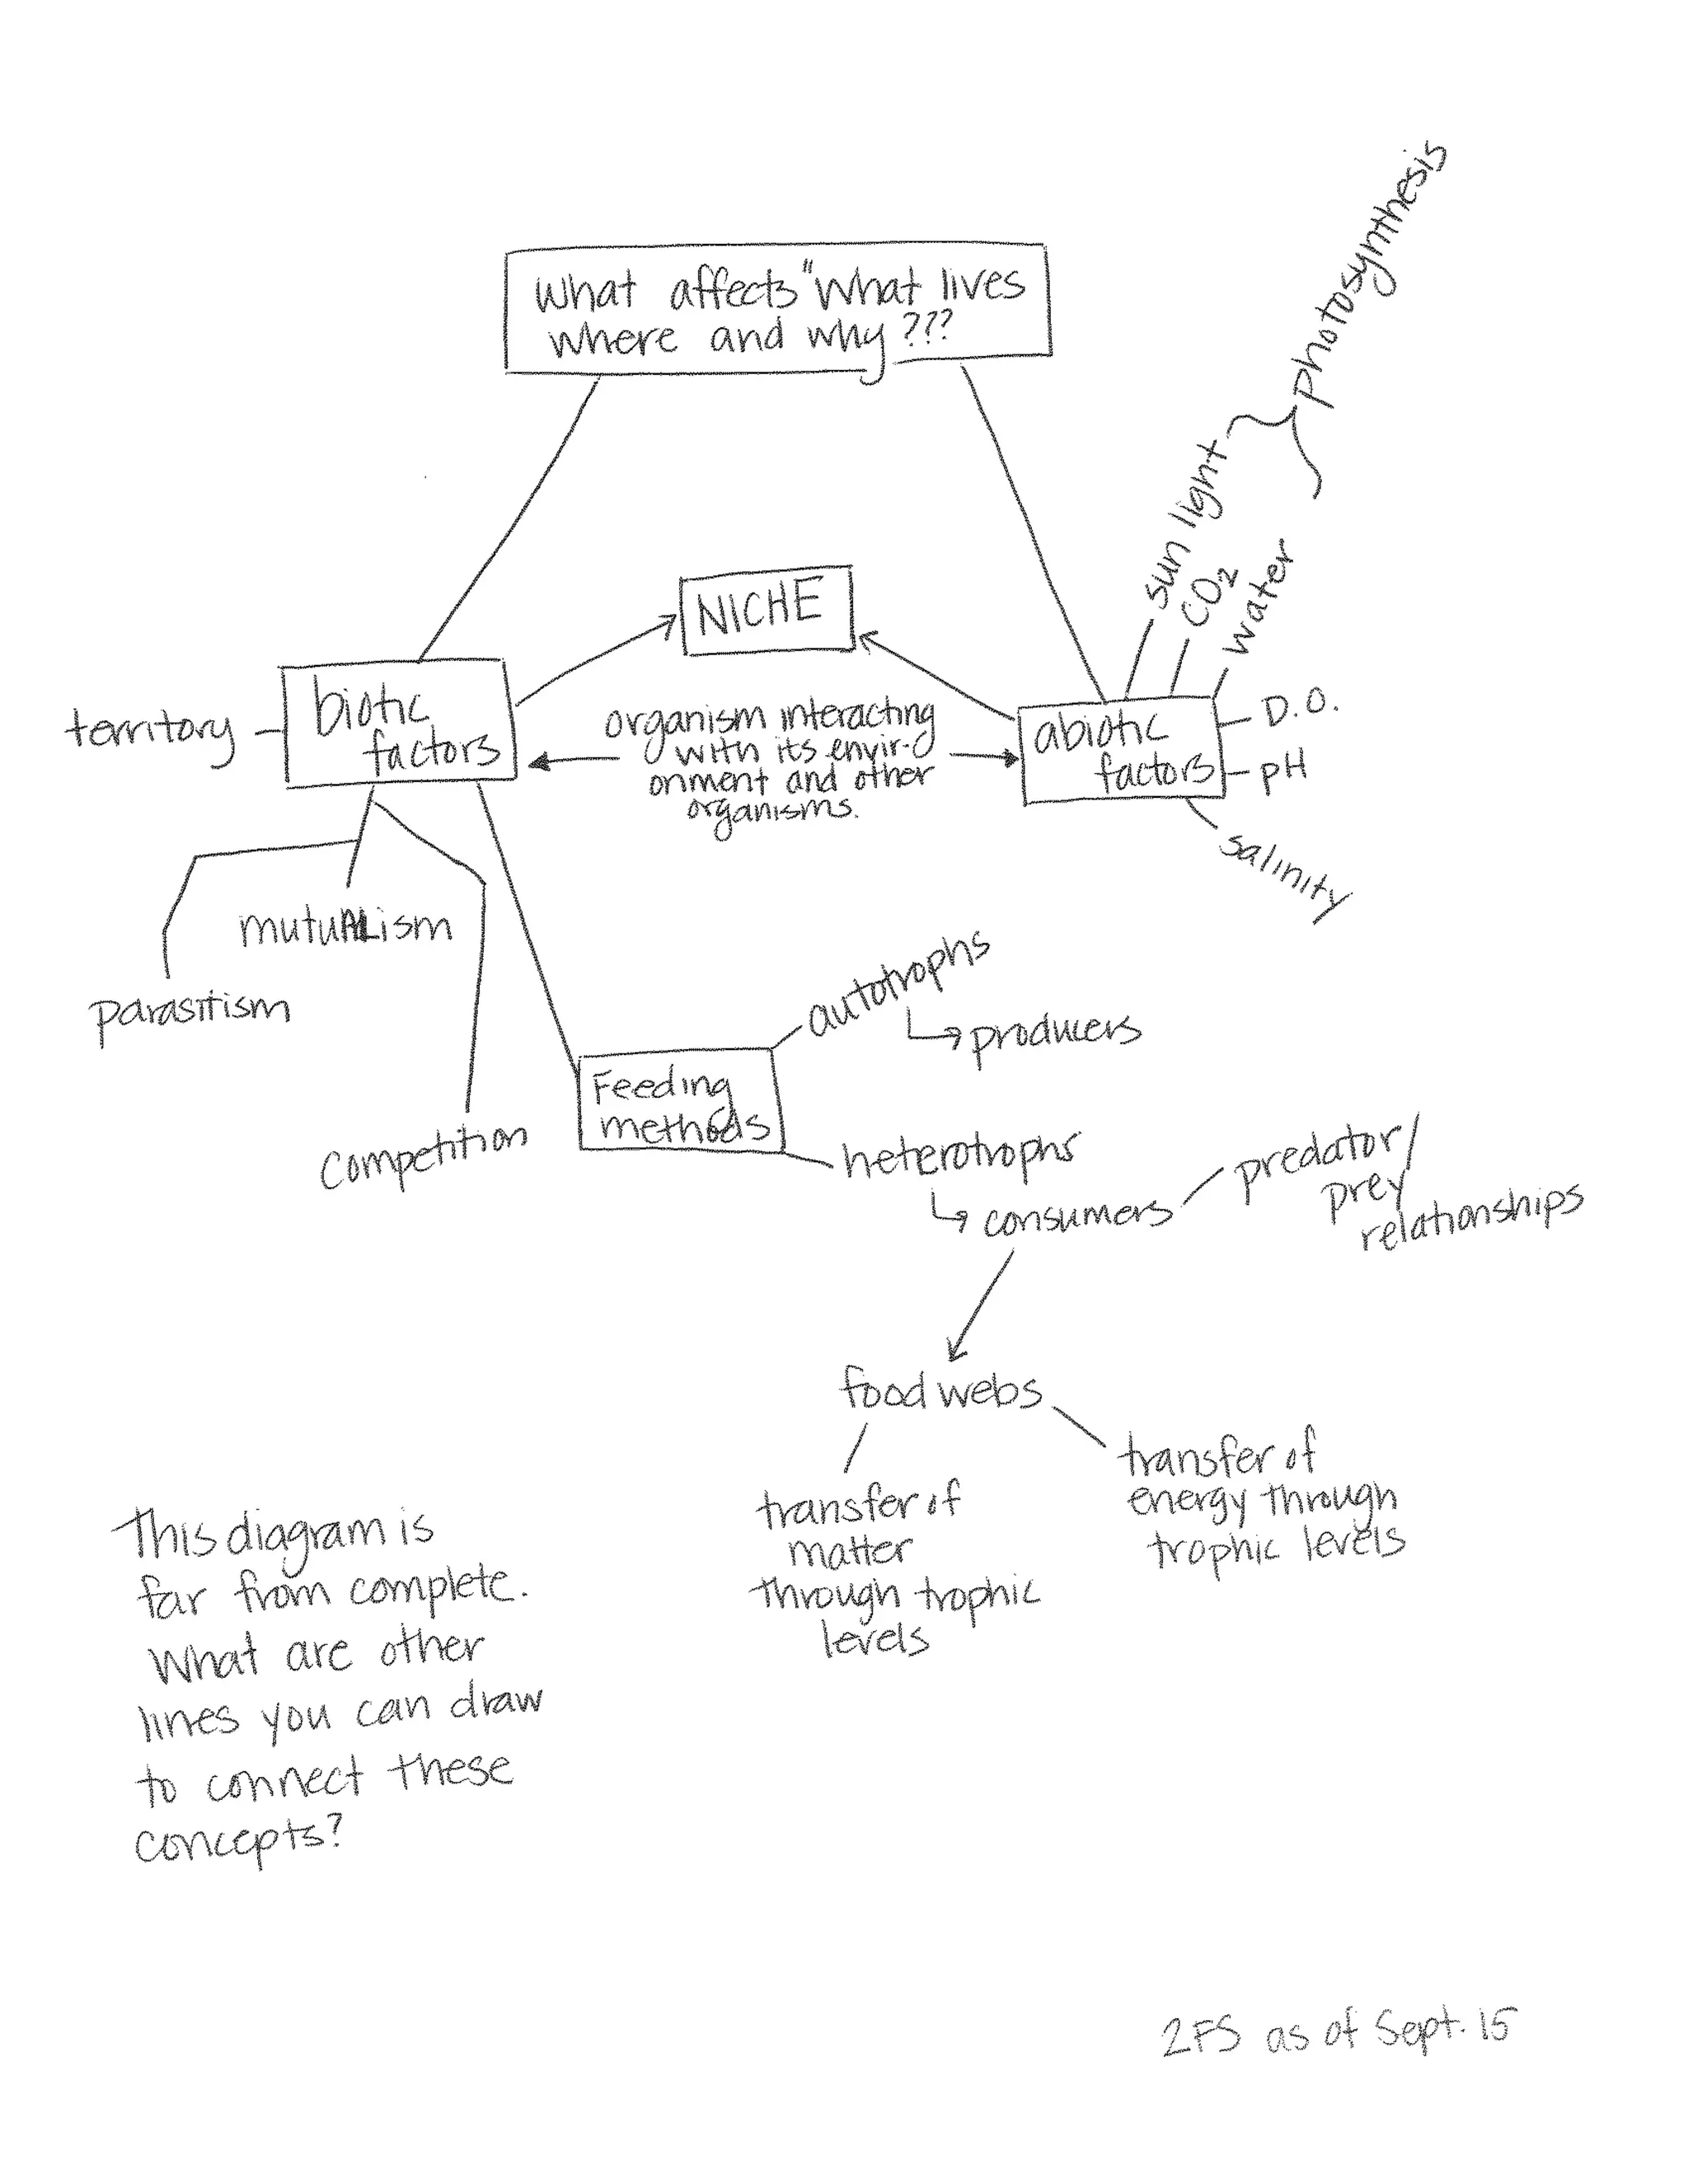 What affects "What lives
where and why???
photosynthesis
sun light
CO₂
water
NICHE
territory
biotic
factors
organism interacting
with its envir-
onment and other
organisms.
abiotic
factors
D.O.
pH
salinity
mutuALism
parasitism
competition
Feeding
methods
autotrophs
producers
heterotrophs
consumers
predator/
prey
relationships
food webs
transfer of
matter
through trophic
levels
transfer of
energy through
trophic levels
This diagram is
far from complete.
What are other
lines you can draw
to connect these
concepts?
2FS as of Sept. 15